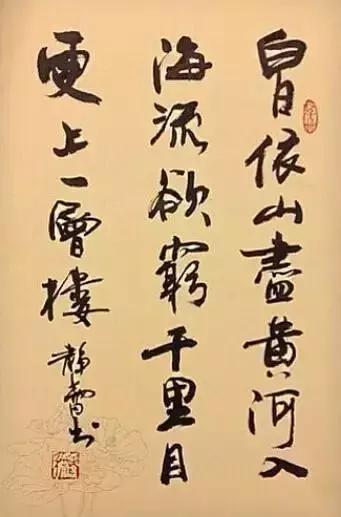 白日依山盡黄河入
海流欲窮千里目
更上一層樓 静雲书